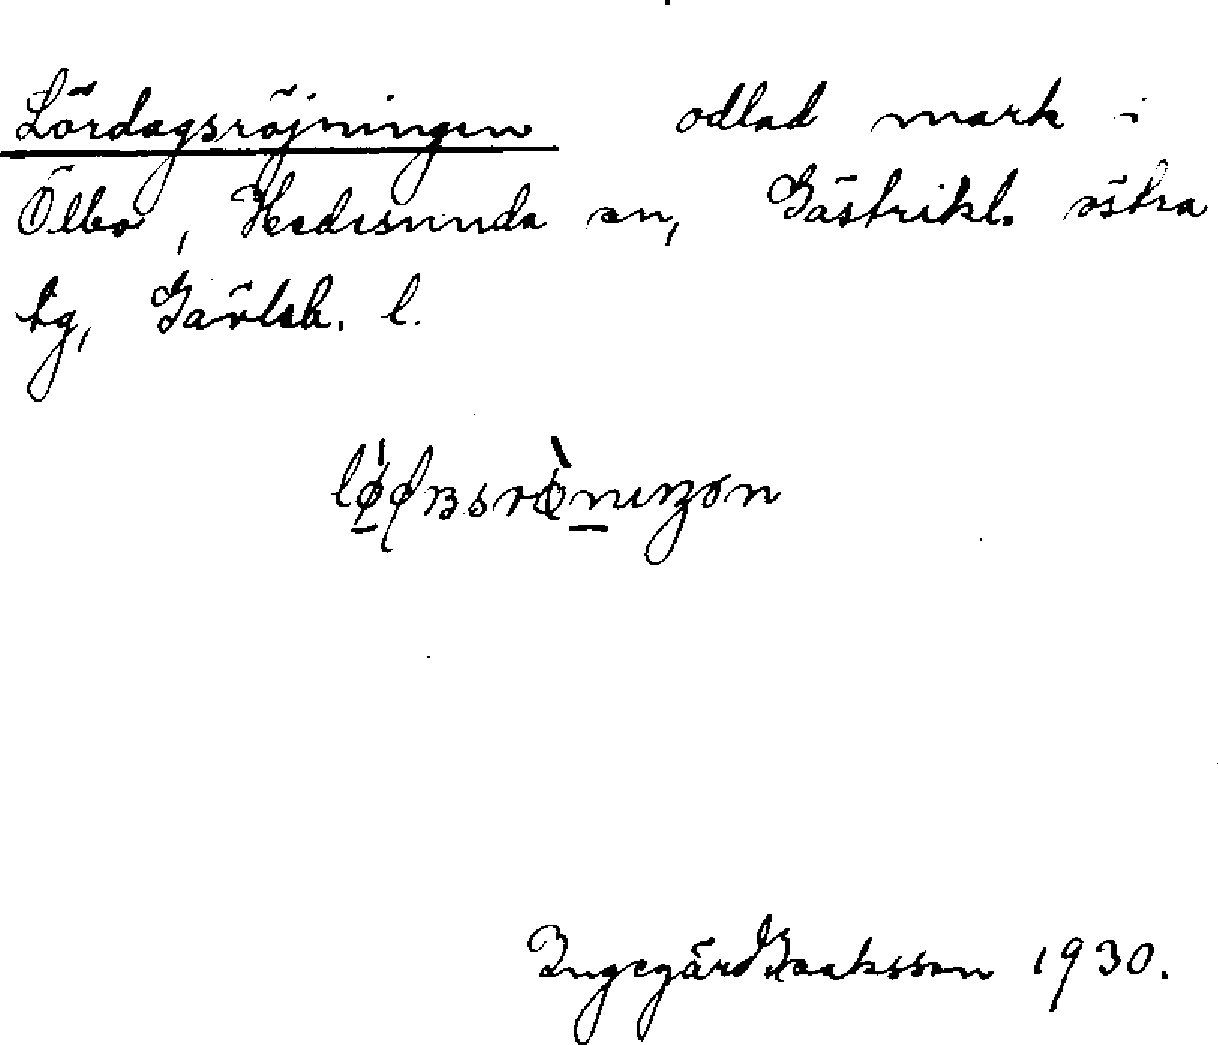 Lördagsröjningen odlad mark i
Ölbo, Hedesunda sn, Gästrikl. östra
tg, Gävleb. l.
Ingegärd Isaksson 1930.